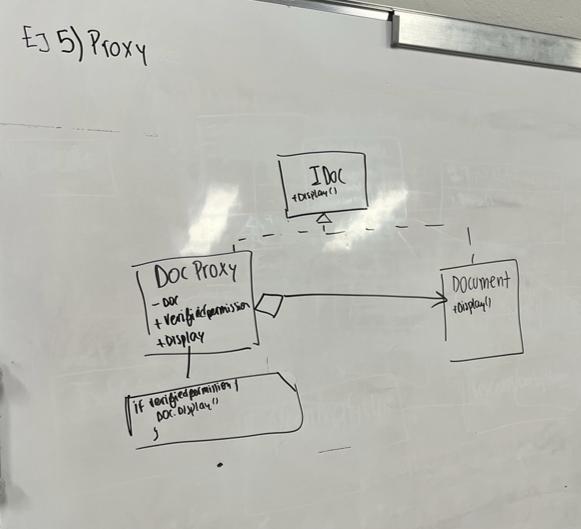 EJ 5) Proxy
IDoc
+Display()
Doc Proxy
- Doc
+ Verifiedpermission
+Display
Document
+Display()
if verifiedpermission {
Doc.Display()
}